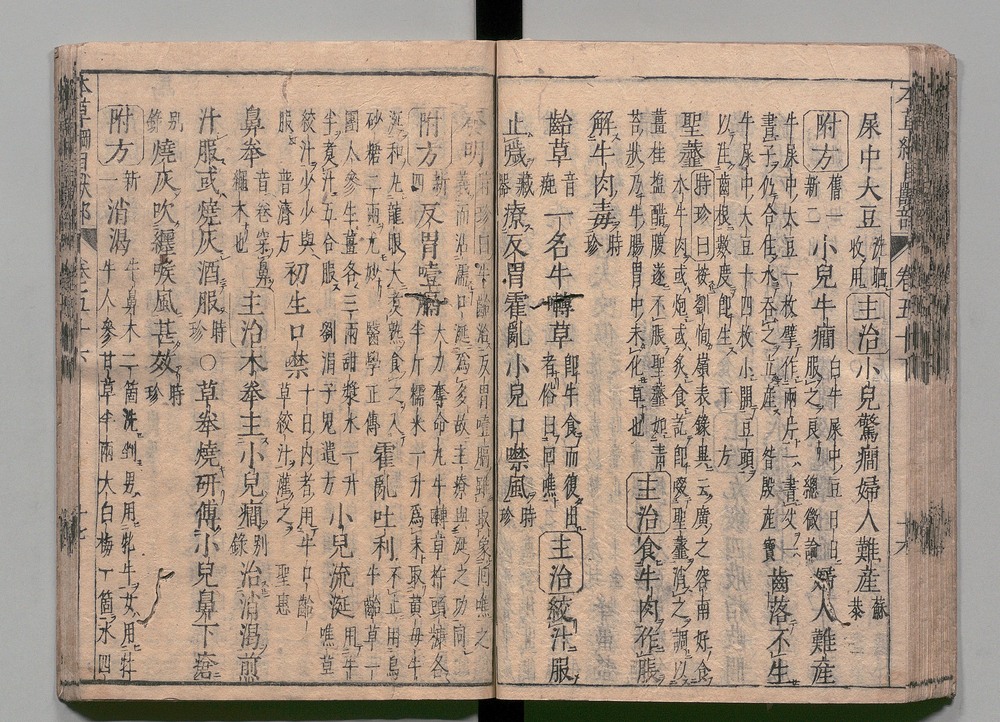 屎中大豆 洗晒收用 主治 小兒驚癇婦人難産 蘇恭
附方 舊一新二 小兒牛癇 白牛屎中豆日日服之良 總微論 婦人難産
牛屎中大豆一枚擘作兩片一書父一書子仍合住水吞之立産 昝殷産寶 齒落不生
牛屎中大豆十四枚小開豆頭以注齒根數度即生 千金方
聖虀 時珍曰按劉恂嶺表錄異云廣之容南好食水牛肉或炮或炙食訖即啜聖虀消之調以
薑桂塩醋腹遂不脹聖虀如青苔狀乃牛腸胃中未化草也 主治 食牛肉作脹
解牛肉毒 時珍
齝草 音 一名牛轉草 即牛食而復出者俗曰回噍 主治 絞汁服
止噦 藏器 療反胃霍亂小兒口噤風 時珍
發明 時珍曰牛齝治反胃噎膈雖取象回噍之義而沾濡口涎爲多故主療與涎之功同
附方 新四 反胃噎膈 大力奪命丸牛轉草杵頭糠各半斤糯米一升爲末取黄母牛
涎和丸龍眼大煑熟食之入砂糖二兩尤妙 醫學正傳 霍亂吐利不止 用烏牛齝草一
團人參生薑各三兩甜漿水一升半煑汁五合服 劉涓子鬼遺方 小兒流涎 用牛噍草
絞汁少少與服 普濟方 初生口噤 十日内者用牛口齝草絞汁灌之 聖惠
鼻拳 音卷穿鼻繩木也 主治 木拳主小兒癇 别錄 治消渇煎
汁服或燒灰酒服 時珍 ○草拳燒研傅小兒鼻下瘡
别錄 燒灰吹纏喉風甚效 時珍
附方 新一 消渇 牛鼻木二箇洗剉男用牝牛女用牡牛人參甘草半兩大白梅一箇水四
卷五十
卷五十
十六
十七